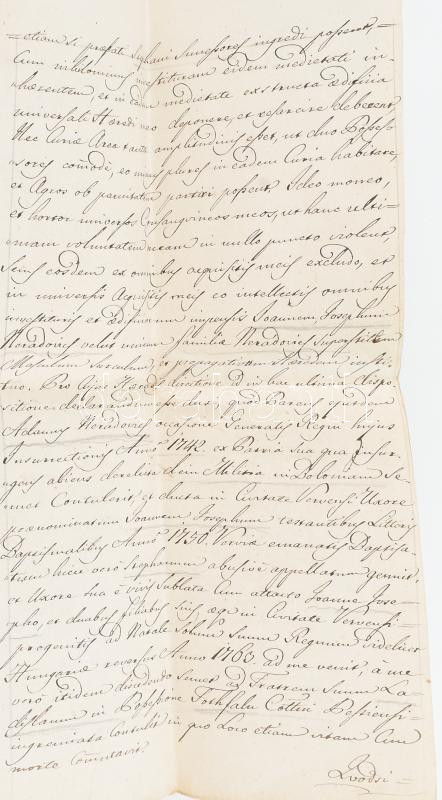 =etiam Si præfati Legitimi Successores ingredi possent, =
Cum nihilominus investituram eidem medietati in=
=hærentem, et in eadem medietate exstructa ædificia
universali Hæredi meo deponere, et refarcire deberent,
Nec Curiæ Area tantæ amplitudinis esset, ut duo Posses=
sores comode, eo minus plures in eadem Curia habitare,
et Agros ob parvitatem partiri possent. Ideo moneo,
et hortor universos Consanguineos meos, ut hanc ulti=
=mam voluntatem meam in nullo puncto violent,
Sens eosdem ex omnibus acquisitis meis excludo, et
in universis Acquisitis meis eo intellectis omnibus
investituris et ædificiorum impensis Joannem, Josephum
Neradovics velut unicum familiæ Neradovics superstitem
Masculum surculum, et propagatorem Hæredem insti=
tuo. Pro cujus Hæredis directione id in hac ultima dispo=
sitione declarandum esse duxi, quod Parens ejusdem
Adamus Neradovics occasione Generalis Regni hujus
Insurrectionis Anno 1742. ex Patria sua qua insur=
gens aliens derelicta dein Militia in Poloniam Se=
met Contulerit, et ducta in Civitate Verven Uxore
prænominatum Joannem Josephum testantibus Litteris
Baptismalibus Anno 1750. Varviæ emanatis Baptisa=
=tum hicce vero Stephanum abusive appellatum genuit,
et Uxore sua e vivis Sublata Cum attacto Joanne Jose=
=pho, et duabus filiabus suis, æqe in Civitate Vervensi=
progenitis ad Natale Solum Suum Regnum videlicet
Hungariæ reversus Anno 1763. ad me venit, a me
vero itidem discedendo Semet ad Fratrem Suum La=
dislaum in Possessione Tothfalu Cottui Pestiensi=
ingremiata Contulit in quo Loco etiam vitam Cum
morte Comutavit.
Quodsi=